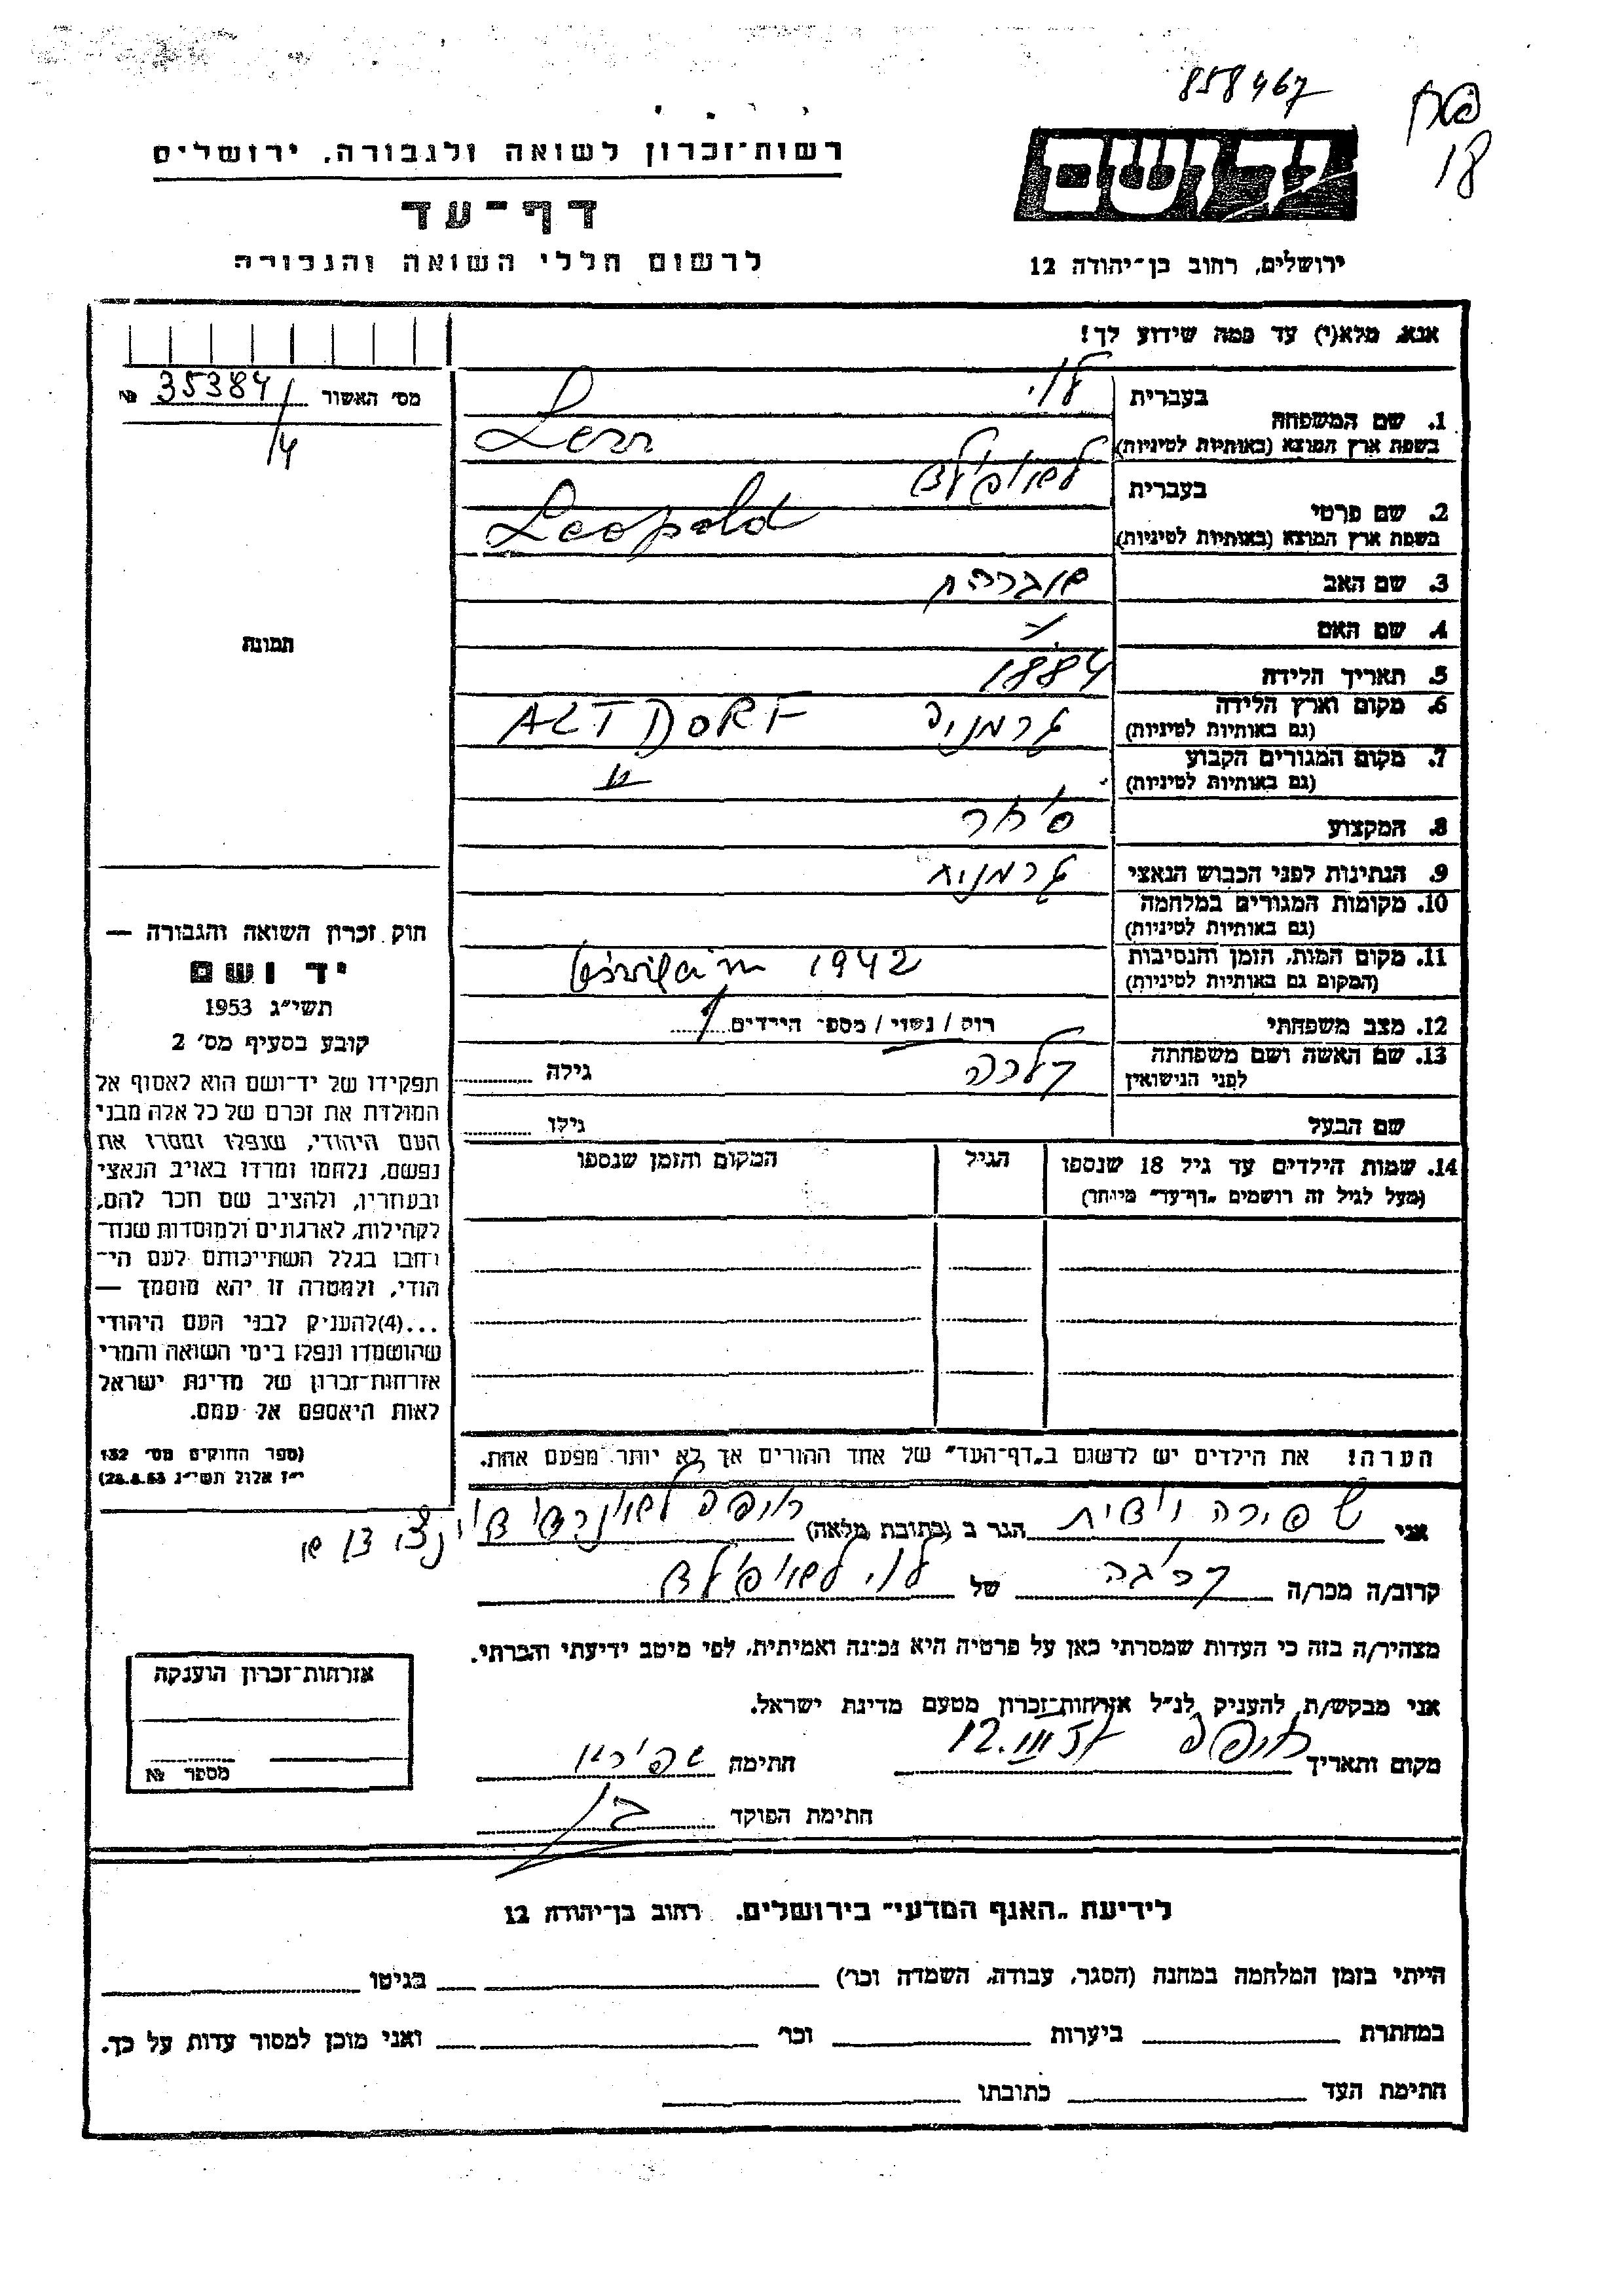 858467
18
רשות־זכרון לשואה ולגבורה, ירושלים
יד ושם
דף־עד
לרשום חללי השואה והגבורה
ירושלים, רחוב בן־יהודה 12
אנא, מלא(י) עד כמה שידוע לך!
מס' האשור 35384 №
/4
1. שם המשפחה
בעברית לוי
בשפת ארץ המוצא (באותיות לטיניות)
2. שם פרטי
בעברית לאופולד
בשפת ארץ המוצא (באותיות לטיניות) Leopold
3. שם האב אברהם
4. שם האם
5. תאריך הלידה 1884
6. מקום וארץ הלידה גרמניה ALTDORF
(גם באותיות לטיניות)
7. מקום המגורים הקבוע "
(גם באותיות לטיניות)
8. המקצוע סוחר
9. הנתינות לפני הכבוש הנאצי גרמנית
10. מקומות המגורים במלחמה
(גם באותיות לטיניות)
11. מקום המות, הזמן והנסיבות 1942
(המקום גם באותיות לטיניות)
12. מצב משפחתי רוק / נשוי / מספר הילדים 1
13. שם האשה ושם משפחתה קלרה גילה
לפני הנישואין
שם הבעל גילו
14. שמות הילדים עד גיל 18 שנספו הגיל המקום והזמן שנספו
(מעל לגיל זה רושמים „דף־עד" מיוחד)
תמונה
חוק זכרון השואה והגבורה —
יד ושם
תשי"ג 1953
קובע בסעיף מס' 2
תפקידו של יד־ושם הוא לאסוף אל
המולדת את זכרם של כל אלה מבני
העם היהודי, שנפלו ומסרו את
נפשם, נלחמו ומרדו באויב הנאצי
ובעוזריו, ולהציב שם וזכר להם,
לקהילות, לארגונים ולמוסדות שנח־
רבו בגלל השתייכותם לעם הי־
הודי, ולמטרה זו יהא מוסמך —
...(4) להעניק לבני העם היהודי
שהושמדו ונפלו בימי השואה והמרי
אזרחות־זכרון של מדינת ישראל
לאות היאספם אל עמם.
(ספר החוקים מס' 132
י"ז אלול תשי"ג 28.8.53)
הערה! את הילדים יש לרשום ב„דף־העד" של אחד ההורים אך לא יותר מפעם אחת.
אני שפירה יהודית הגר ב (כתובת מלאה) חיפה
קרוב/ה מכר/ה קרובה של לוי לאופולד
מצהיר/ה בזה כי העדות שמסרתי כאן על פרטיה היא נכונה ואמיתית, לפי מיטב ידיעתי והכרתי.
אני מבקש/ת להעניק לנ"ל אזרחות־זכרון מטעם מדינת ישראל.
מקום ותאריך חיפה 12.III.57 חתימה שפירא
חתימת הפוקד
אזרחות־זכרון הוענקה
מספר №
לידיעת „האגף המדעי" בירושלים, רחוב בן־יהודה 12
הייתי בזמן המלחמה במחנה (הסגר, עבודה, השמדה וכר') בגיטו
במחתרת ביערות וכר' ואני מוכן למסור עדות על כך.
חתימת העד כתובתו